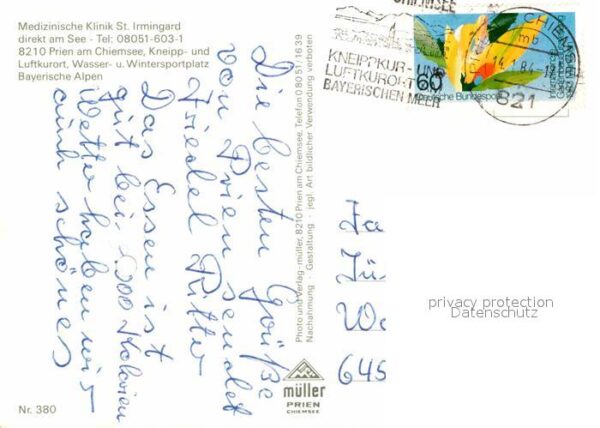 Medizinische Klinik St. Irmingard
direkt am See - Tel: 08051-603-1
8210 Prien am Chiemsee, Kneipp- und
Luftkurort, Wasser- u. Wintersportplatz
Bayerische Alpen
Die besten Grüße
von Prien sendet
Friedel Ritter
Das Essen ist
gut bei 1000 Kalorien
Wetter haben wir
auch schönes
Photo und Verlag - müller, 8210 Prien am Chiemsee, Telefon 08051/1639
Nachahmung - Gestaltung - jegl. Art bildlicher Verwendung verboten
CHIEMSEE
KNEIPPKUR- UND
LUFTKURORT
BAYERISCHEN MEER
60
Deutsche Bundespost
CHIEMSEE
mb
821
Fa
Jü
We
645
privacy protection
Datenschutz
müller
PRIEN
CHIEMSEE
Nr. 380